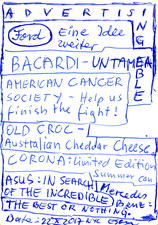 ADVERTISING
Ford Eine Idee
weiter
BACARDI - UNTAMEABLE
AMERICAN CANCER
SOCIETY - Help us
finish the fight!
OLD CROC -
Australian Cheddar Cheese
CORONA: Limited Edition
Summer can
ASUS: IN SEARCH
OF THE INCREDIBLE
Mercedes
Benz:
THE BEST OR NOTHING.
Date: 22 X 2017